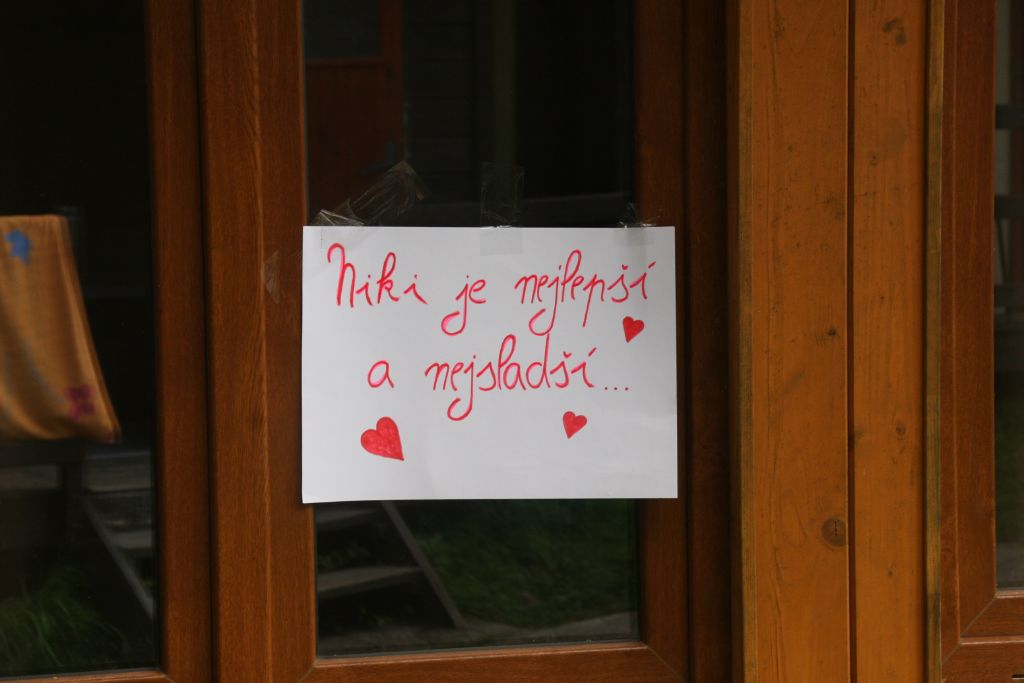 Niki je nejlepší
a nejsladší...